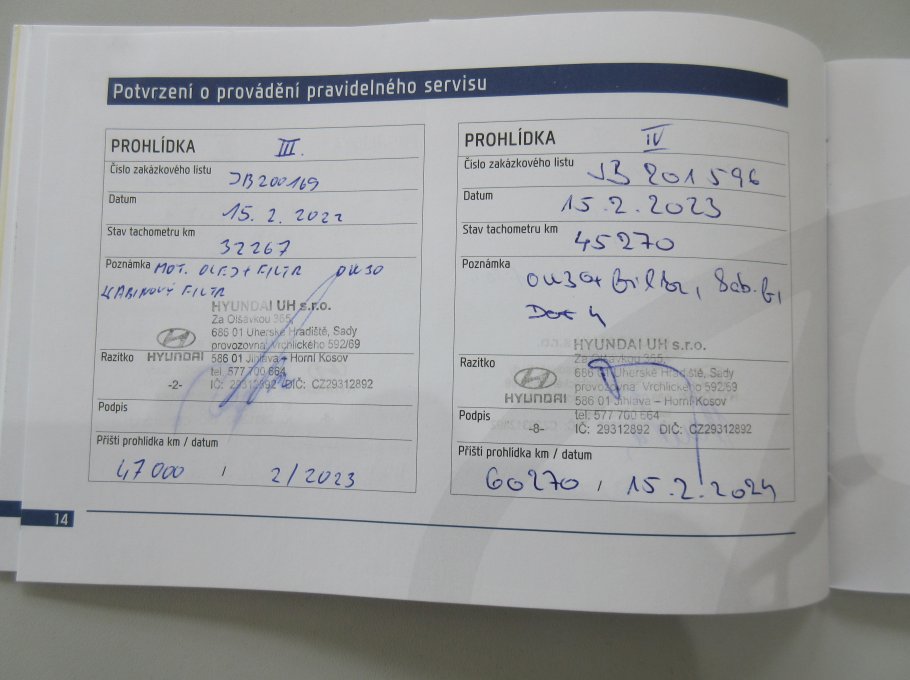 Potvrzení o provádění pravidelného servisu
PROHLÍDKA III.
Číslo zakázkového listu JB200169
Datum 15. 2. 2022
Stav tachometru km 32267
Poznámka MOT. OLEJ + FILTR 0W30
KABINOVÝ FILTR
HYUNDAI UH s.r.o.
Za Olšávkou 365,
686 01 Uherské Hradiště, Sady
provozovna: Vrchlického 592/69
Razítko HYUNDAI 586 01 Jihlava – Horní Kosov
tel. 577 700 664
-2- IČ: 29312892 DIČ: CZ29312892
Podpis
Příští prohlídka km / datum
47 000 / 2/2023
PROHLÍDKA IV
Číslo zakázkového listu JB 201596
Datum 15.2.2023
Stav tachometru km 45270
Poznámka 0W30+filtr,
Dot 4
HYUNDAI UH s.r.o.
Za Olšávkou 365,
Razítko 686 01 Uherské Hradiště, Sady
provozovna: Vrchlického 592/69
HYUNDAI 586 01 Jihlava – Horní Kosov
Podpis tel. 577 700 664
-8- IČ: 29312892 DIČ: CZ29312892
Příští prohlídka km / datum
60270 / 15.2.2024
14